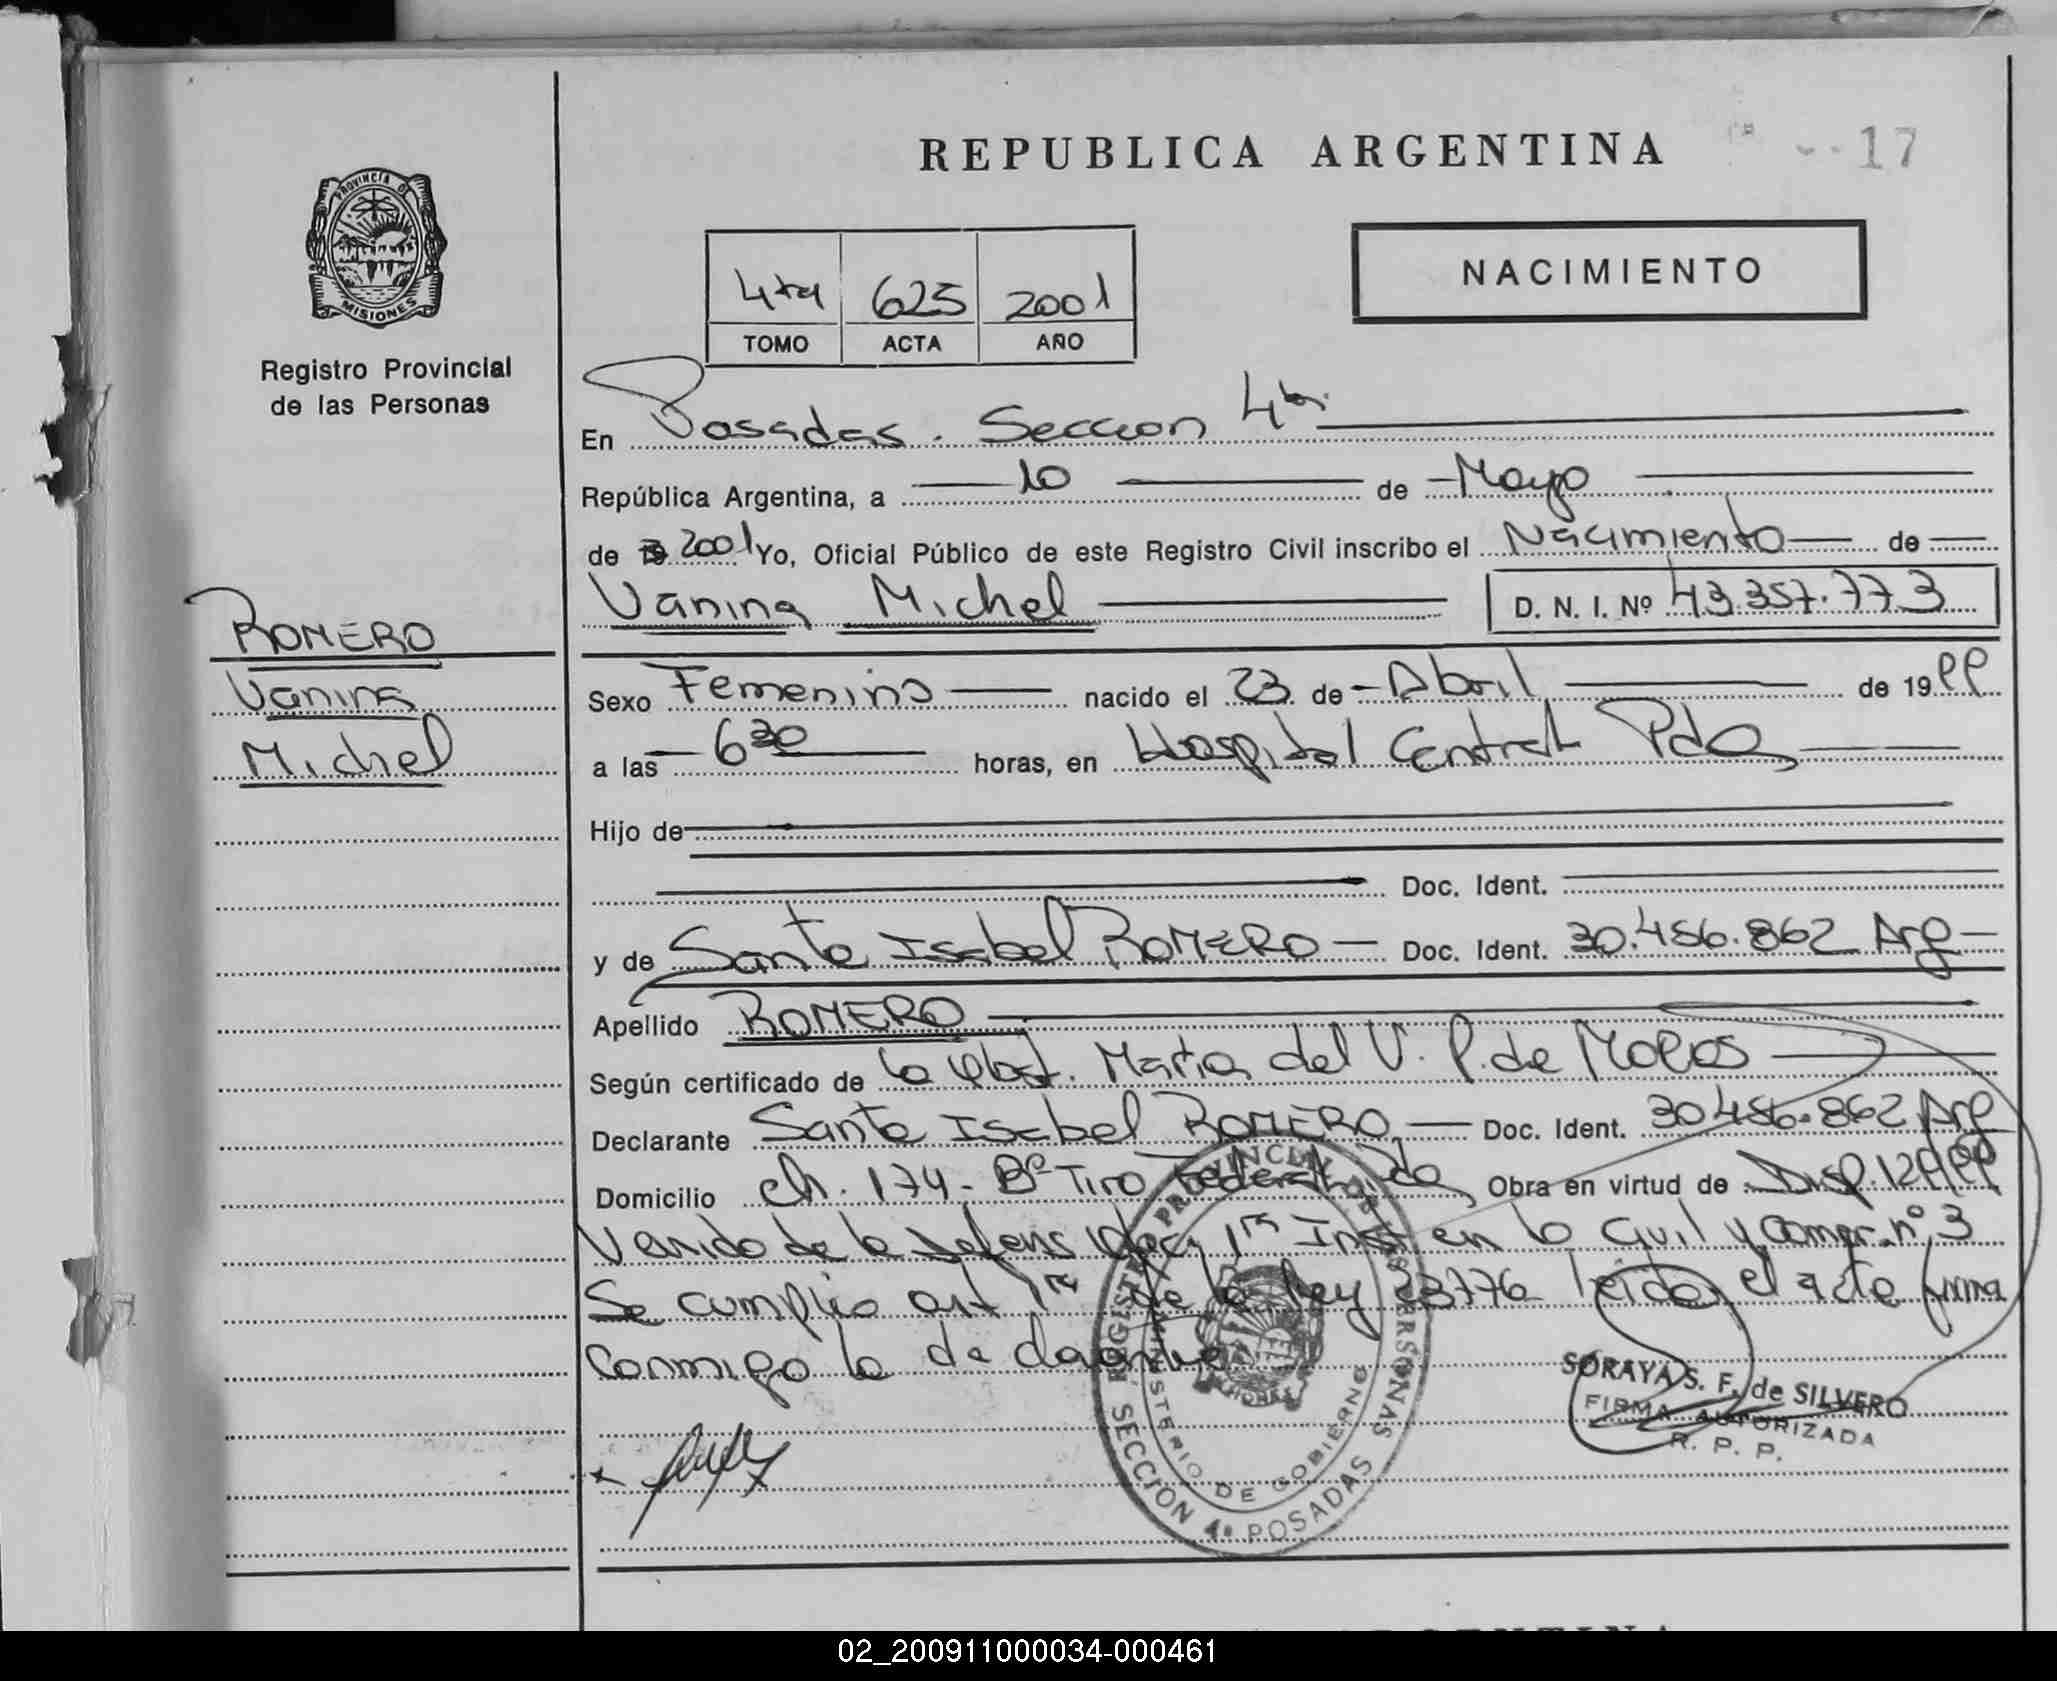 REPUBLICA ARGENTINA
17
PROVINCIA DE
MISIONES
Registro Provincial
de las Personas
NACIMIENTO
4ta 625 2001
TOMO ACTA AÑO
En Posadas. Seccion 4ta
República Argentina, a 10 de Mayo
de 2001 Yo, Oficial Público de este Registro Civil inscribo el Nacimiento de
Vanina Michel D. N. I. Nº 43.357.773
ROMERO
Vanina
Michel
Sexo Femenino nacido el 23 de Abril de 1999
a las 6 30 horas, en Hospital Central Pdas
Hijo de
Doc. Ident.
y de Santa Isabel ROMERO Doc. Ident. 30.486.862 Arg
Apellido ROMERO
Según certificado de la Obst. Maria del V. P. de
Declarante Santa Isabel ROMERO Doc. Ident. 30.486.862 Arg
Domicilio ch. 174 - Bº Tiro Federal Pdas Obra en virtud de Disp. 129/99
Venido de la 1ra Inst en lo Civil y Comer. nº 3
Se cumplio art 1ra de la ley 23776 leida el acta firma
conmigo la declarante
SORAYA S. F. de SILVERO
FIRMA AUTORIZADA
R. P. P.
REGISTRO PROVINCIAL DE LAS PERSONAS
MINISTERIO DE GOBIERNO
SECCIÓN 4ª POSADAS
02_200911000034-000461